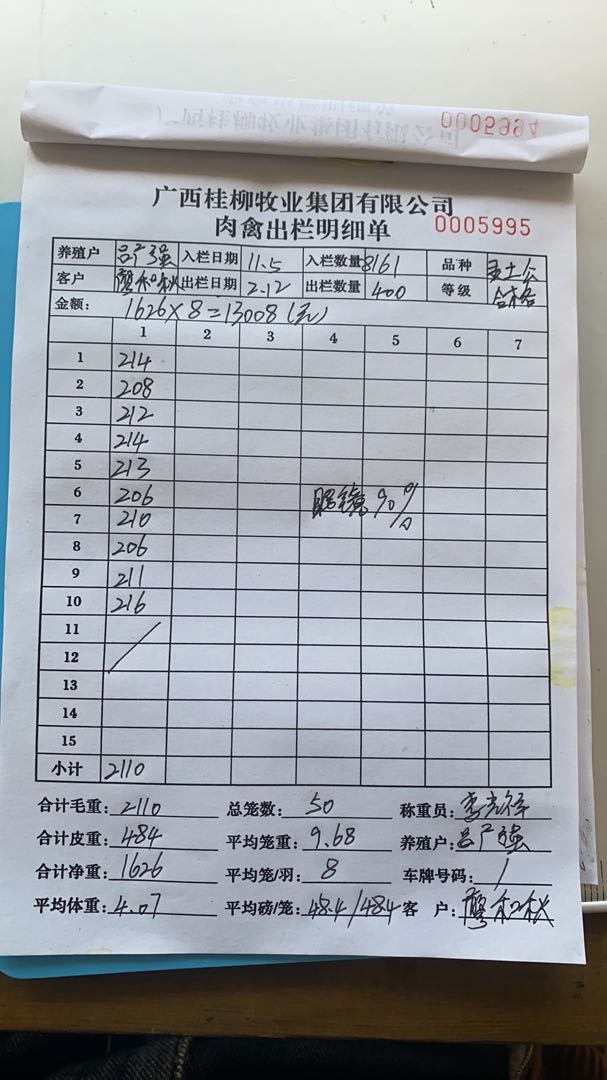 0005994
广西桂柳牧业集团有限公司
肉禽出栏明细单 0005995
养殖户 吕广强 入栏日期 11.5 入栏数量 8161 品种 灵土公
客户 廖和秋 出栏日期 2.12 出栏数量 400 等级 合格
金额: 1626×8=13008(元)
1 2 3 4 5 6 7
1 214
2 208
3 212
4 214
5 213
6 206 眼镜90%
7 210
8 206
9 211
10 216
11
12
13
14
15
小计 2110
合计毛重: 2110 总笼数: 50 称重员:
合计皮重: 484 平均笼重: 9.68 养殖户: 吕广强
合计净重: 1626 平均笼/羽: 8 车牌号码: /
平均体重: 4.07 平均磅/笼: 48.4/484 客 户: 廖和秋